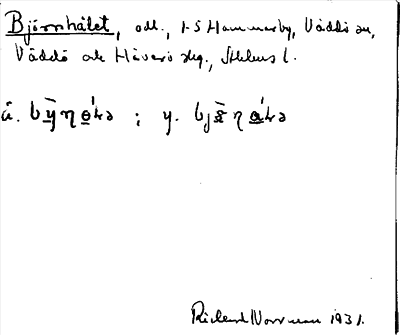 Björnhålet, odl., 1-5 Hammarby, Väddö sn,
Väddö och Häverö skg., Sthlms l.
ä. bȳŋ ; y. bj
Richard Norrman 1931.